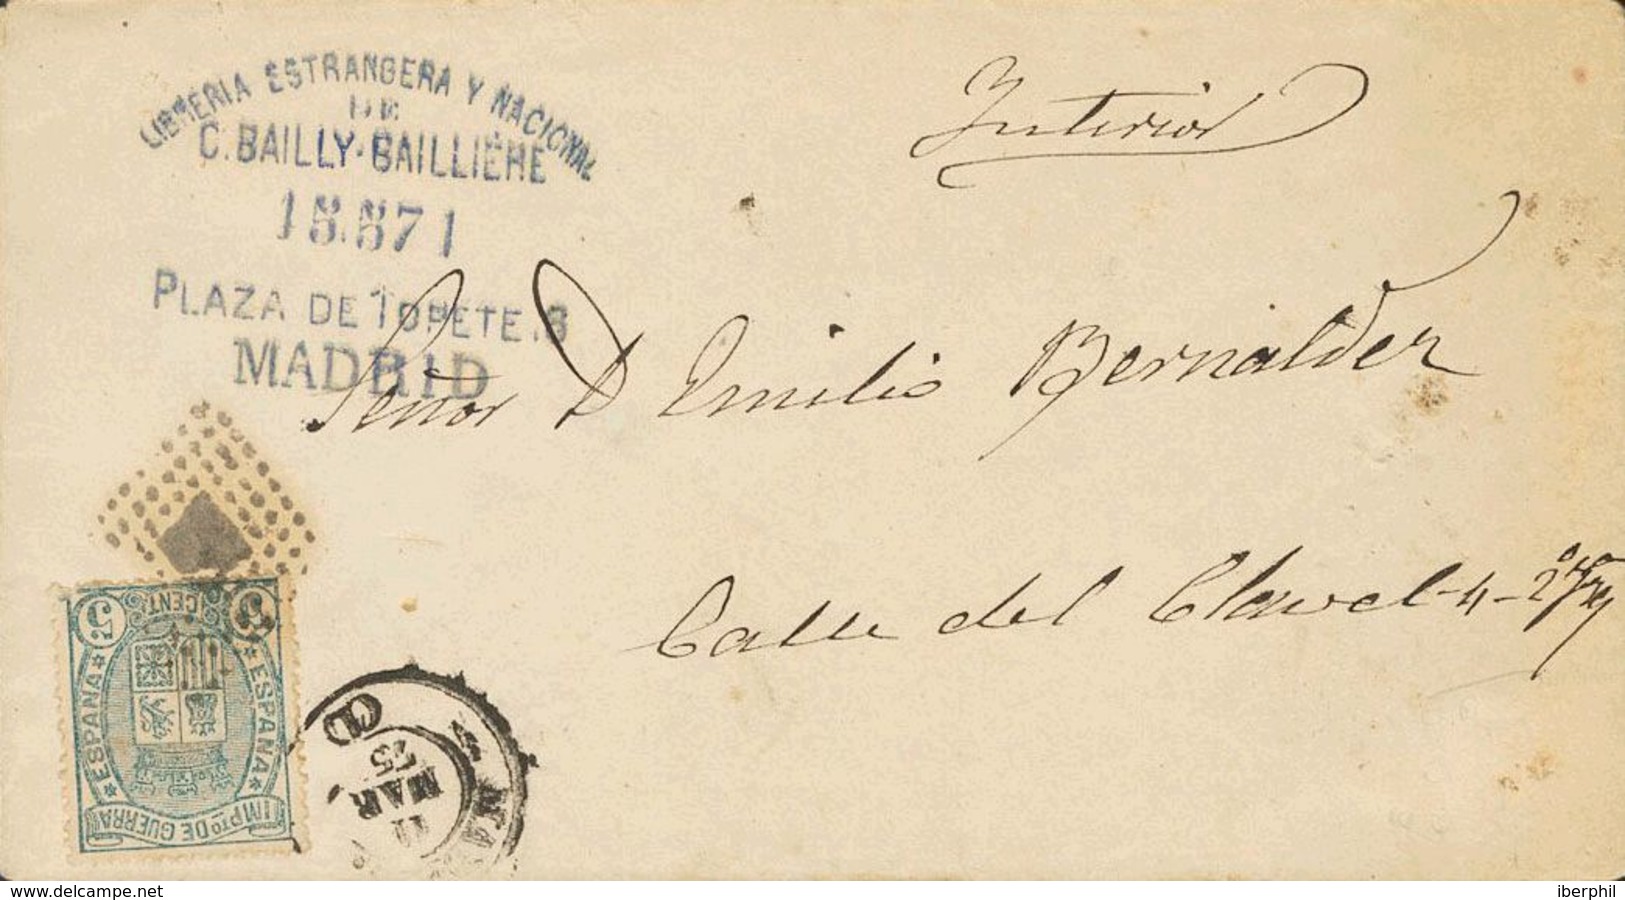 LIBRERIA ESTRANGERA Y NACIONAL
DE
C. BAILLY-BAILLIÈRE
Interior
PLAZA DE TOPETE, 8
MADRID
Señor D Emilio Bernaldez
Calle del Clavel-4-2º
5 CENT. 5
ESPAÑA
ESPAÑA
IMPTO DE GUERRA
MAR
75
www.delcampe.net
iberphil